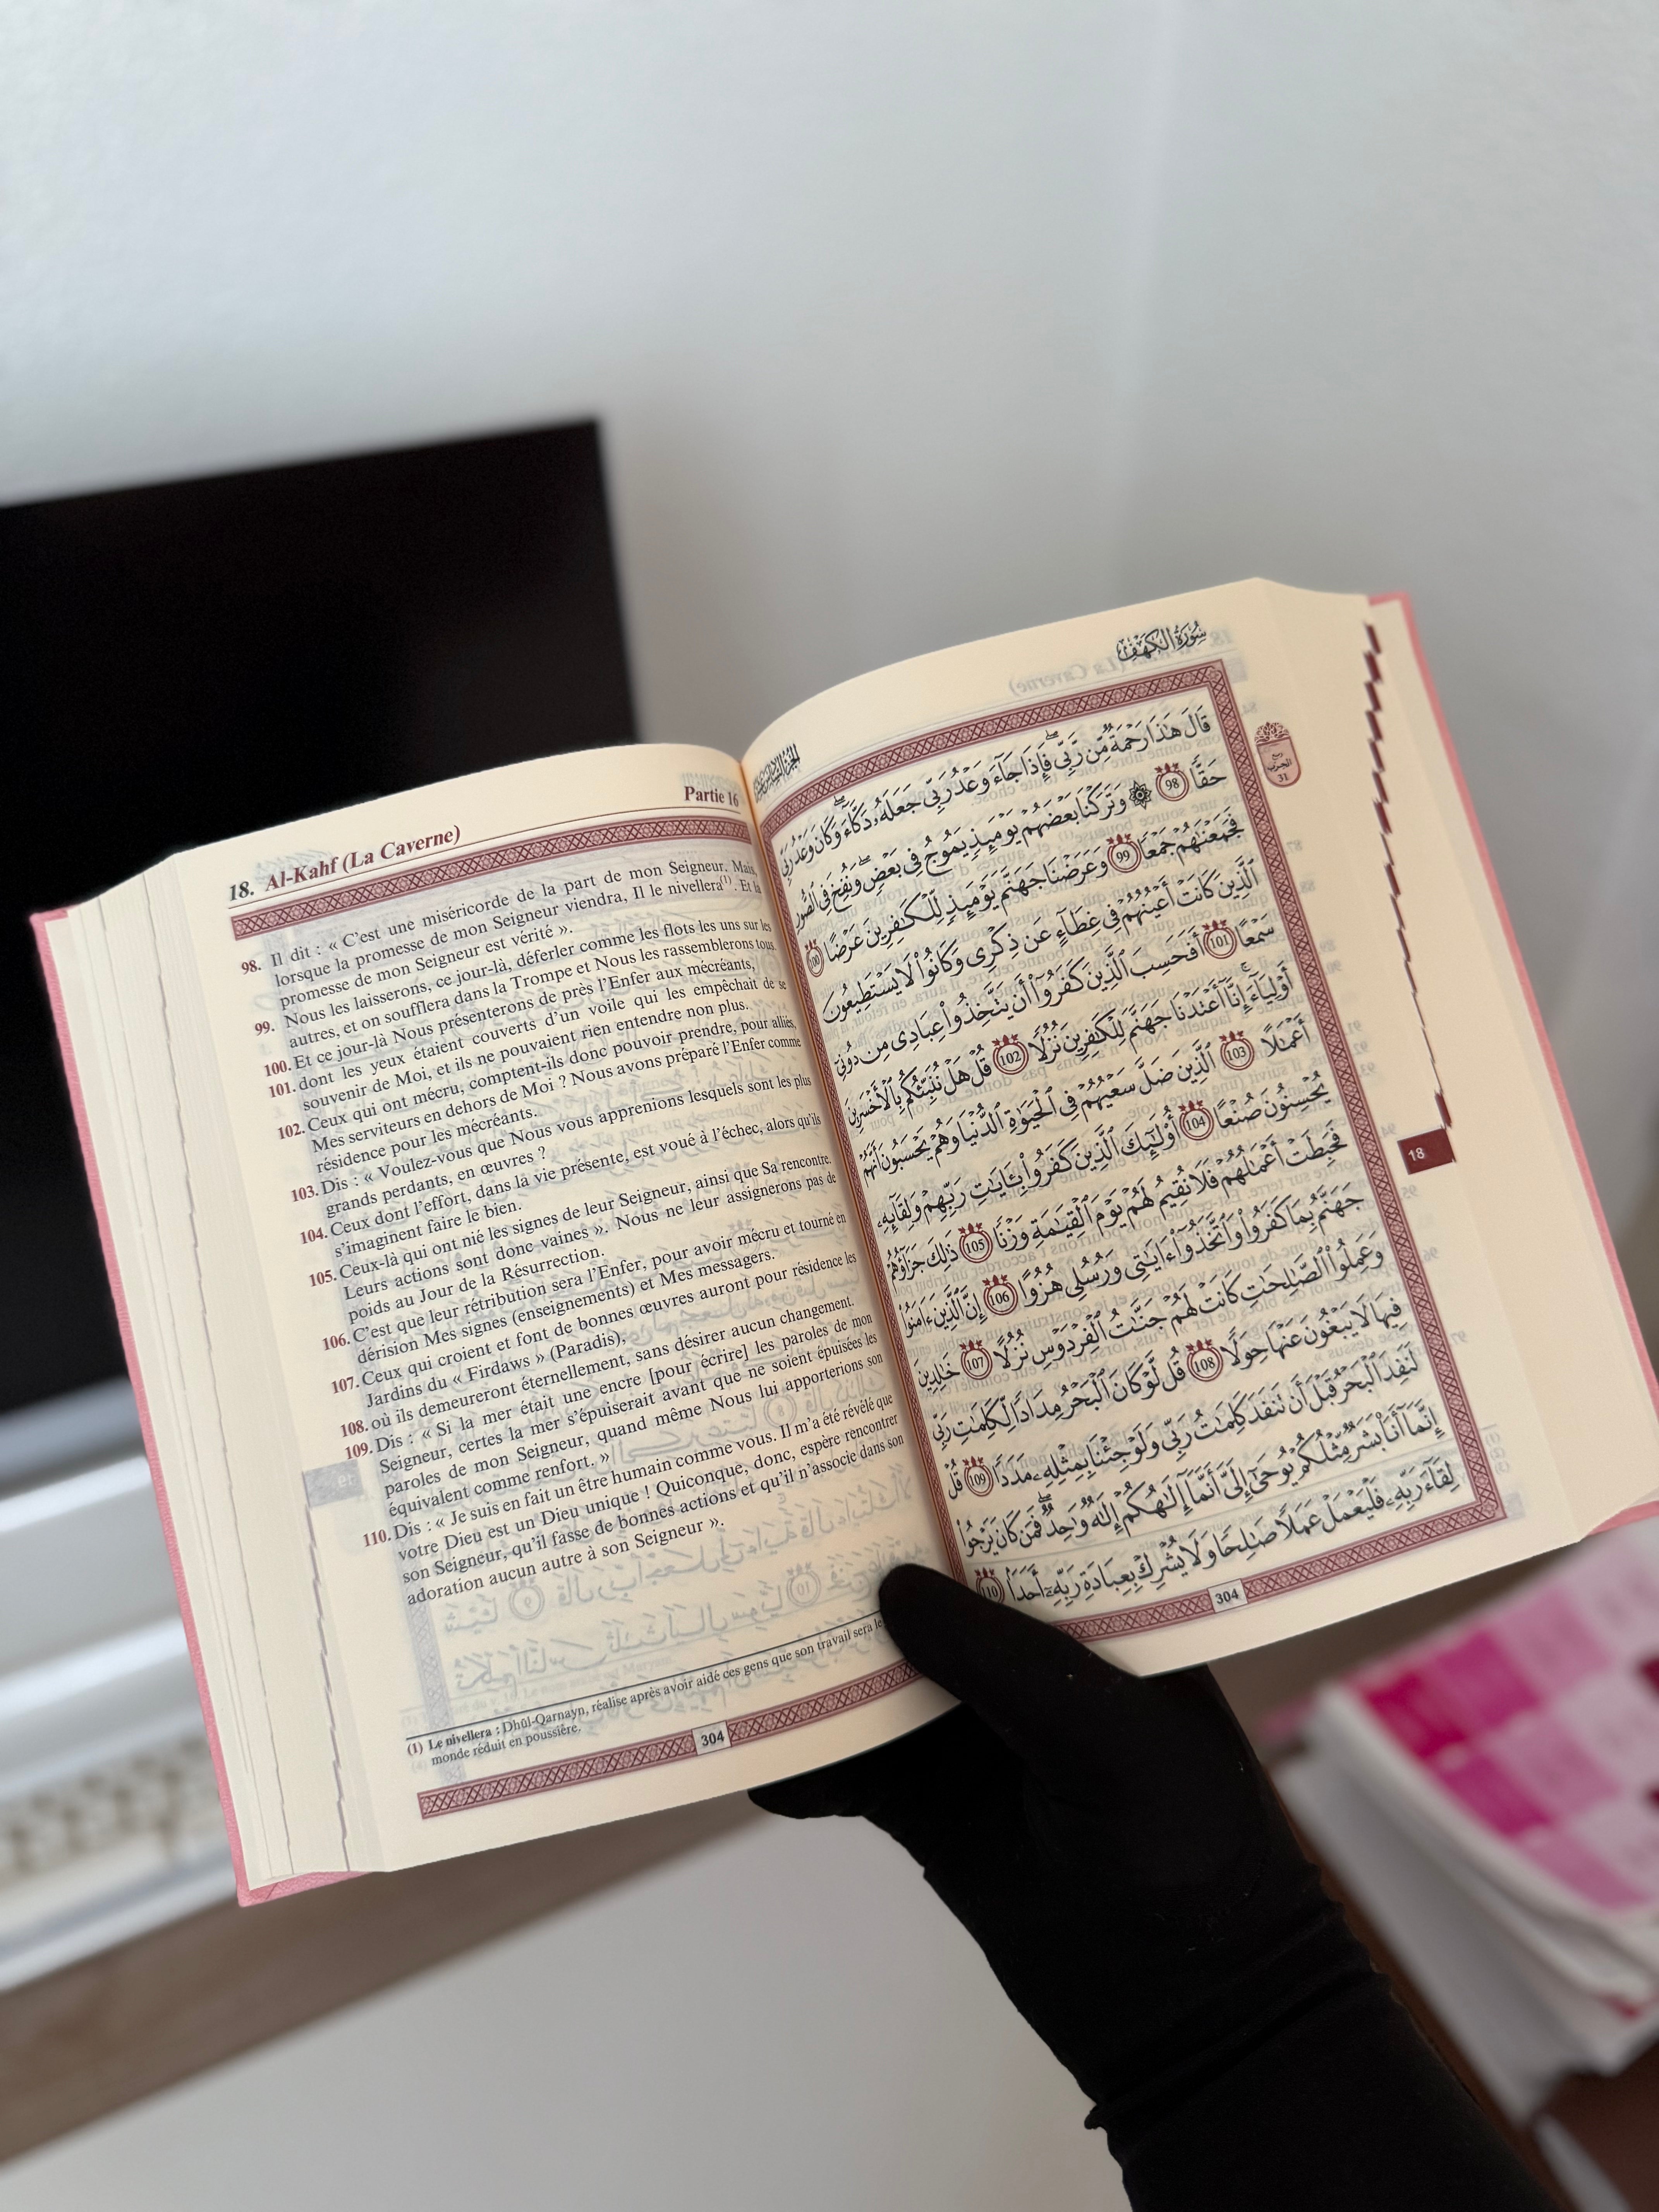 18. Al-Kahf (La Caverne)
Partie 16
98. Il dit : « C'est une miséricorde de la part de mon Seigneur. Mais,
lorsque la promesse de mon Seigneur viendra, Il le nivellera(1). Et la
promesse de mon Seigneur est vérité ».
99. Nous les laisserons, ce jour-là, déferler comme les flots les uns sur les
autres, et on soufflera dans la Trompe et Nous les rassemblerons tous.
100. Et ce jour-là Nous présenterons de près l'Enfer aux mécréants,
101. dont les yeux étaient couverts d'un voile qui les empêchait de se
souvenir de Moi, et ils ne pouvaient rien entendre non plus.
102. Ceux qui ont mécru, comptent-ils donc pouvoir prendre, pour alliés,
Mes serviteurs en dehors de Moi ? Nous avons préparé l'Enfer comme
résidence pour les mécréants.
103. Dis : « Voulez-vous que Nous vous apprenions lesquels sont les plus
grands perdants, en œuvres ?
104. Ceux dont l'effort, dans la vie présente, est voué à l'échec, alors qu'ils
s'imaginent faire le bien.
105. Ceux-là qui ont nié les signes de leur Seigneur, ainsi que Sa rencontre.
Leurs actions sont donc vaines ». Nous ne leur assignerons pas de
poids au Jour de la Résurrection.
106. C'est que leur rétribution sera l'Enfer, pour avoir mécru et tourné en
dérision Mes signes (enseignements) et Mes messagers.
107. Ceux qui croient et font de bonnes œuvres auront pour résidence les
Jardins du « Firdaws » (Paradis),
108. où ils demeureront éternellement, sans désirer aucun changement.
109. Dis : « Si la mer était une encre [pour écrire] les paroles de mon
Seigneur, certes la mer s'épuiserait avant que ne soient épuisées les
paroles de mon Seigneur, quand même Nous lui apporterions son
équivalent comme renfort. »
110. Dis : « Je suis en fait un être humain comme vous. Il m'a été révélé que
votre Dieu est un Dieu unique ! Quiconque, donc, espère rencontrer
son Seigneur, qu'il fasse de bonnes actions et qu'il n'associe dans son
adoration aucun autre à son Seigneur ».
(1) Le nivellera : Dhûl-Qarnayn, réalise après avoir aidé ces gens que son travail sera le
monde réduit en poussière.
304
سُورَةُ الكَهْفِ
قَالَ هَٰذَا رَحْمَةٌ مِّن رَّبِّي ۖ فَإِذَا جَاءَ وَعْدُ رَبِّي جَعَلَهُ دَكَّاءَ ۖ وَكَانَ وَعْدُ رَبِّي
حَقًّا 98 ۞ وَتَرَكْنَا بَعْضَهُمْ يَوْمَئِذٍ يَمُوجُ فِي بَعْضٍ ۖ وَنُفِخَ فِي الصُّورِ
فَجَمَعْنَٰهُمْ جَمْعًا 99 وَعَرَضْنَا جَهَنَّمَ يَوْمَئِذٍ لِّلْكَٰفِرِينَ عَرْضًا 100
ٱلَّذِينَ كَانَتْ أَعْيُنُهُمْ فِي غِطَآءٍ عَن ذِكْرِي وَكَانُوا۟ لَا يَسْتَطِيعُونَ
سَمْعًا 101 أَفَحَسِبَ ٱلَّذِينَ كَفَرُوٓا۟ أَن يَتَّخِذُوا۟ عِبَادِي مِن دُونِيٓ
أَوْلِيَآءَ ۚ إِنَّآ أَعْتَدْنَا جَهَنَّمَ لِلْكَٰفِرِينَ نُزُلًا 102 قُلْ هَلْ نُنَبِّئُكُم بِٱلْأَخْسَرِينَ
أَعْمَٰلًا 103 ٱلَّذِينَ ضَلَّ سَعْيُهُمْ فِي ٱلْحَيَوٰةِ ٱلدُّنْيَا وَهُمْ يَحْسَبُونَ أَنَّهُمْ
يُحْسِنُونَ صُنْعًا 104 أُو۟لَٰٓئِكَ ٱلَّذِينَ كَفَرُوا۟ بِـَٔايَٰتِ رَبِّهِمْ وَلِقَآئِهِ
فَحَبِطَتْ أَعْمَٰلُهُمْ فَلَا نُقِيمُ لَهُمْ يَوْمَ ٱلْقِيَٰمَةِ وَزْنًا 105 ذَٰلِكَ جَزَآؤُهُمْ
جَهَنَّمُ بِمَا كَفَرُوا۟ وَٱتَّخَذُوٓا۟ ءَايَٰتِي وَرُسُلِي هُزُوًا 106 إِنَّ ٱلَّذِينَ ءَامَنُوا۟
وَعَمِلُوا۟ ٱلصَّٰلِحَٰتِ كَانَتْ لَهُمْ جَنَّٰتُ ٱلْفِرْدَوْسِ نُزُلًا 107 خَٰلِدِينَ
فِيهَا لَا يَبْغُونَ عَنْهَا حِوَلًا 108 قُل لَّوْ كَانَ ٱلْبَحْرُ مِدَادًا لِّكَلِمَٰتِ رَبِّي
لَنَفِدَ ٱلْبَحْرُ قَبْلَ أَن تَنفَدَ كَلِمَٰتُ رَبِّي وَلَوْ جِئْنَا بِمِثْلِهِ مَدَدًا 109 قُلْ
إِنَّمَآ أَنَا۠ بَشَرٌ مِّثْلُكُمْ يُوحَىٰٓ إِلَيَّ أَنَّمَآ إِلَٰهُكُمْ إِلَٰهٌ وَٰحِدٌ ۖ فَمَن كَانَ يَرْجُوا۟
لِقَآءَ رَبِّهِ فَلْيَعْمَلْ عَمَلًا صَٰلِحًا وَلَا يُشْرِكْ بِعِبَادَةِ رَبِّهِ أَحَدًا 110
304
ربع
الحزب
31
18